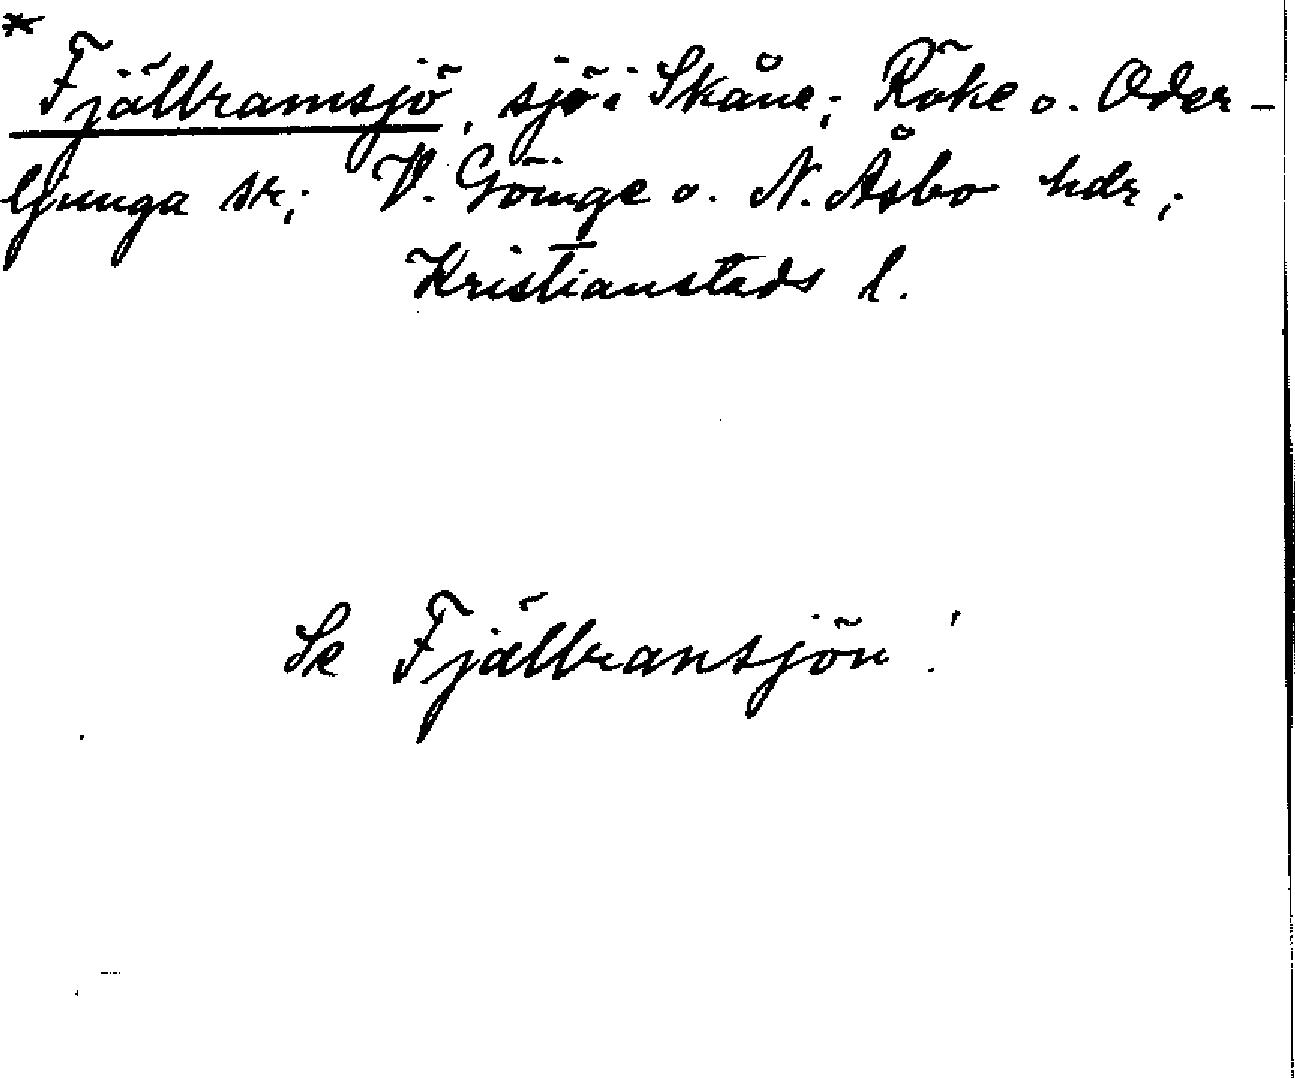 *
Fjälbramsjö, sjö i Skåne; Röke o. Oder-
ljunga sr; V. Göinge o. N. Åsbo hdr;
Kristianstads l.
Se Fjälbransjön!